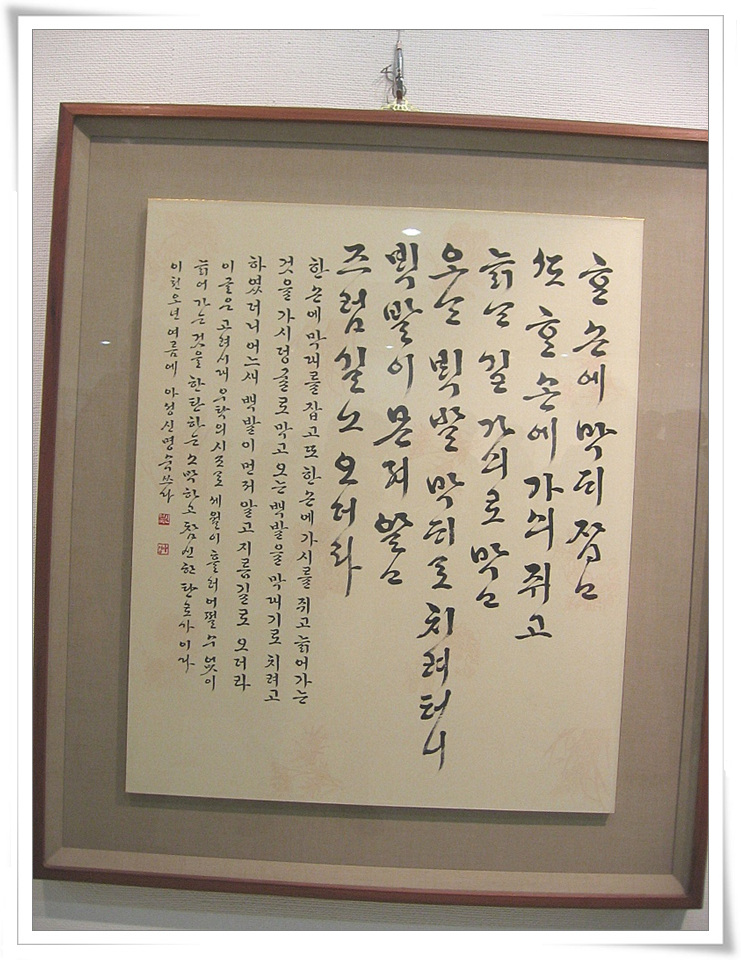 ᄒᆞᆫ 손에 막ᄃᆡ 잡고
ᄯᅩ ᄒᆞᆫ 손에 가싀 쥐고
늙는 길 가싀로 막고
오는 ᄇᆡᆨ발 막ᄃᆡ로 치려터니
ᄇᆡᆨ발이 몬져 알고
즈럼길노 오더라
한 손에 막대를 잡고 또 한 손에 가시를 쥐고 늙어가는
것을 가시덩굴로 막고 오는 백발을 막대기로 치려고
하였더니 어느새 백발이 먼저 알고 지름길로 오더라
이 글은 고려시대 우탁의 시조로 세월이 흘러 어쩔 수 없이
늙어 가는 것을 한탄하는 소박하고 참신한 탄로가이다
이천오년 여름에 아정 신명숙 쓰다